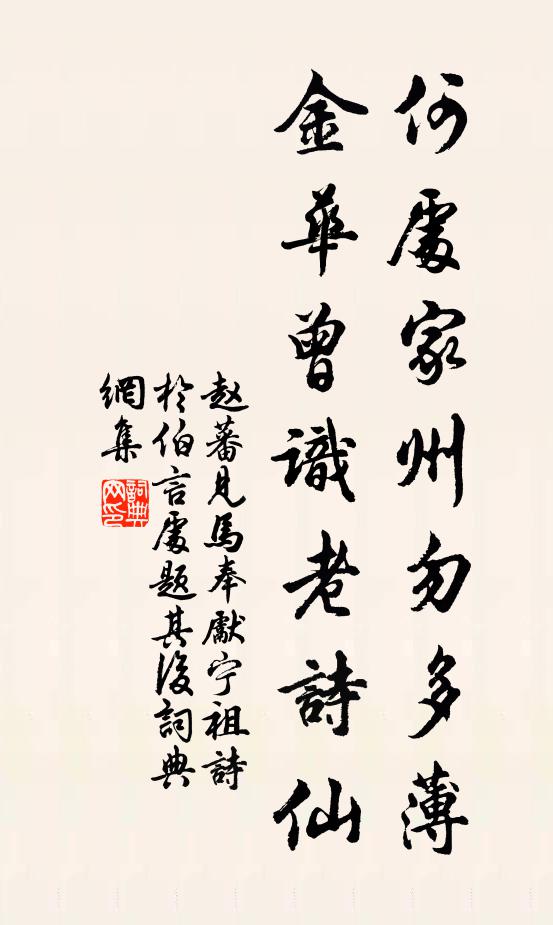 何處家州勿多薄
金華曾識老詩仙
赵蕃見馬奉獻宁祖詩
於伯言處题其後詞典
網集
詞典
網印